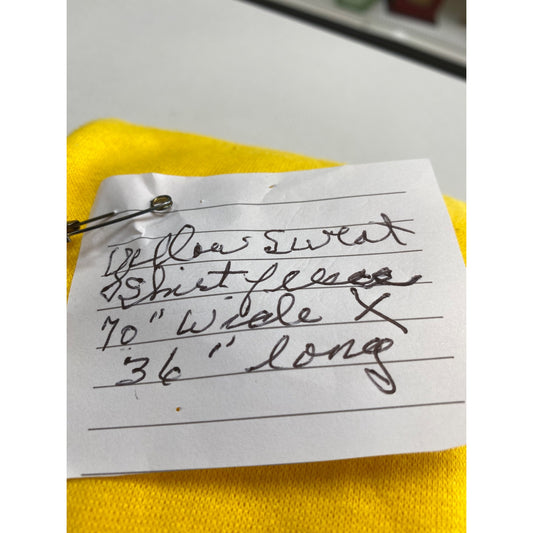 Yellow Sweat
Shirt fleece
70" Wide X
36" long